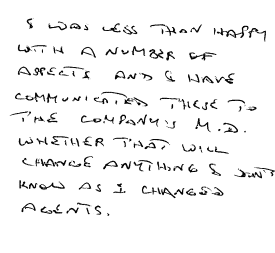 I WAS LESS THAN HAPPY
WITH A NUMBER OF
ASPECTS AND I HAVE
COMMUNICATED THESE TO
THE COMPANY'S M.D.
WHETHER THAT WILL
CHANGE ANYTHING I DON'T
KNOW AS I CHANGED
AGENTS.